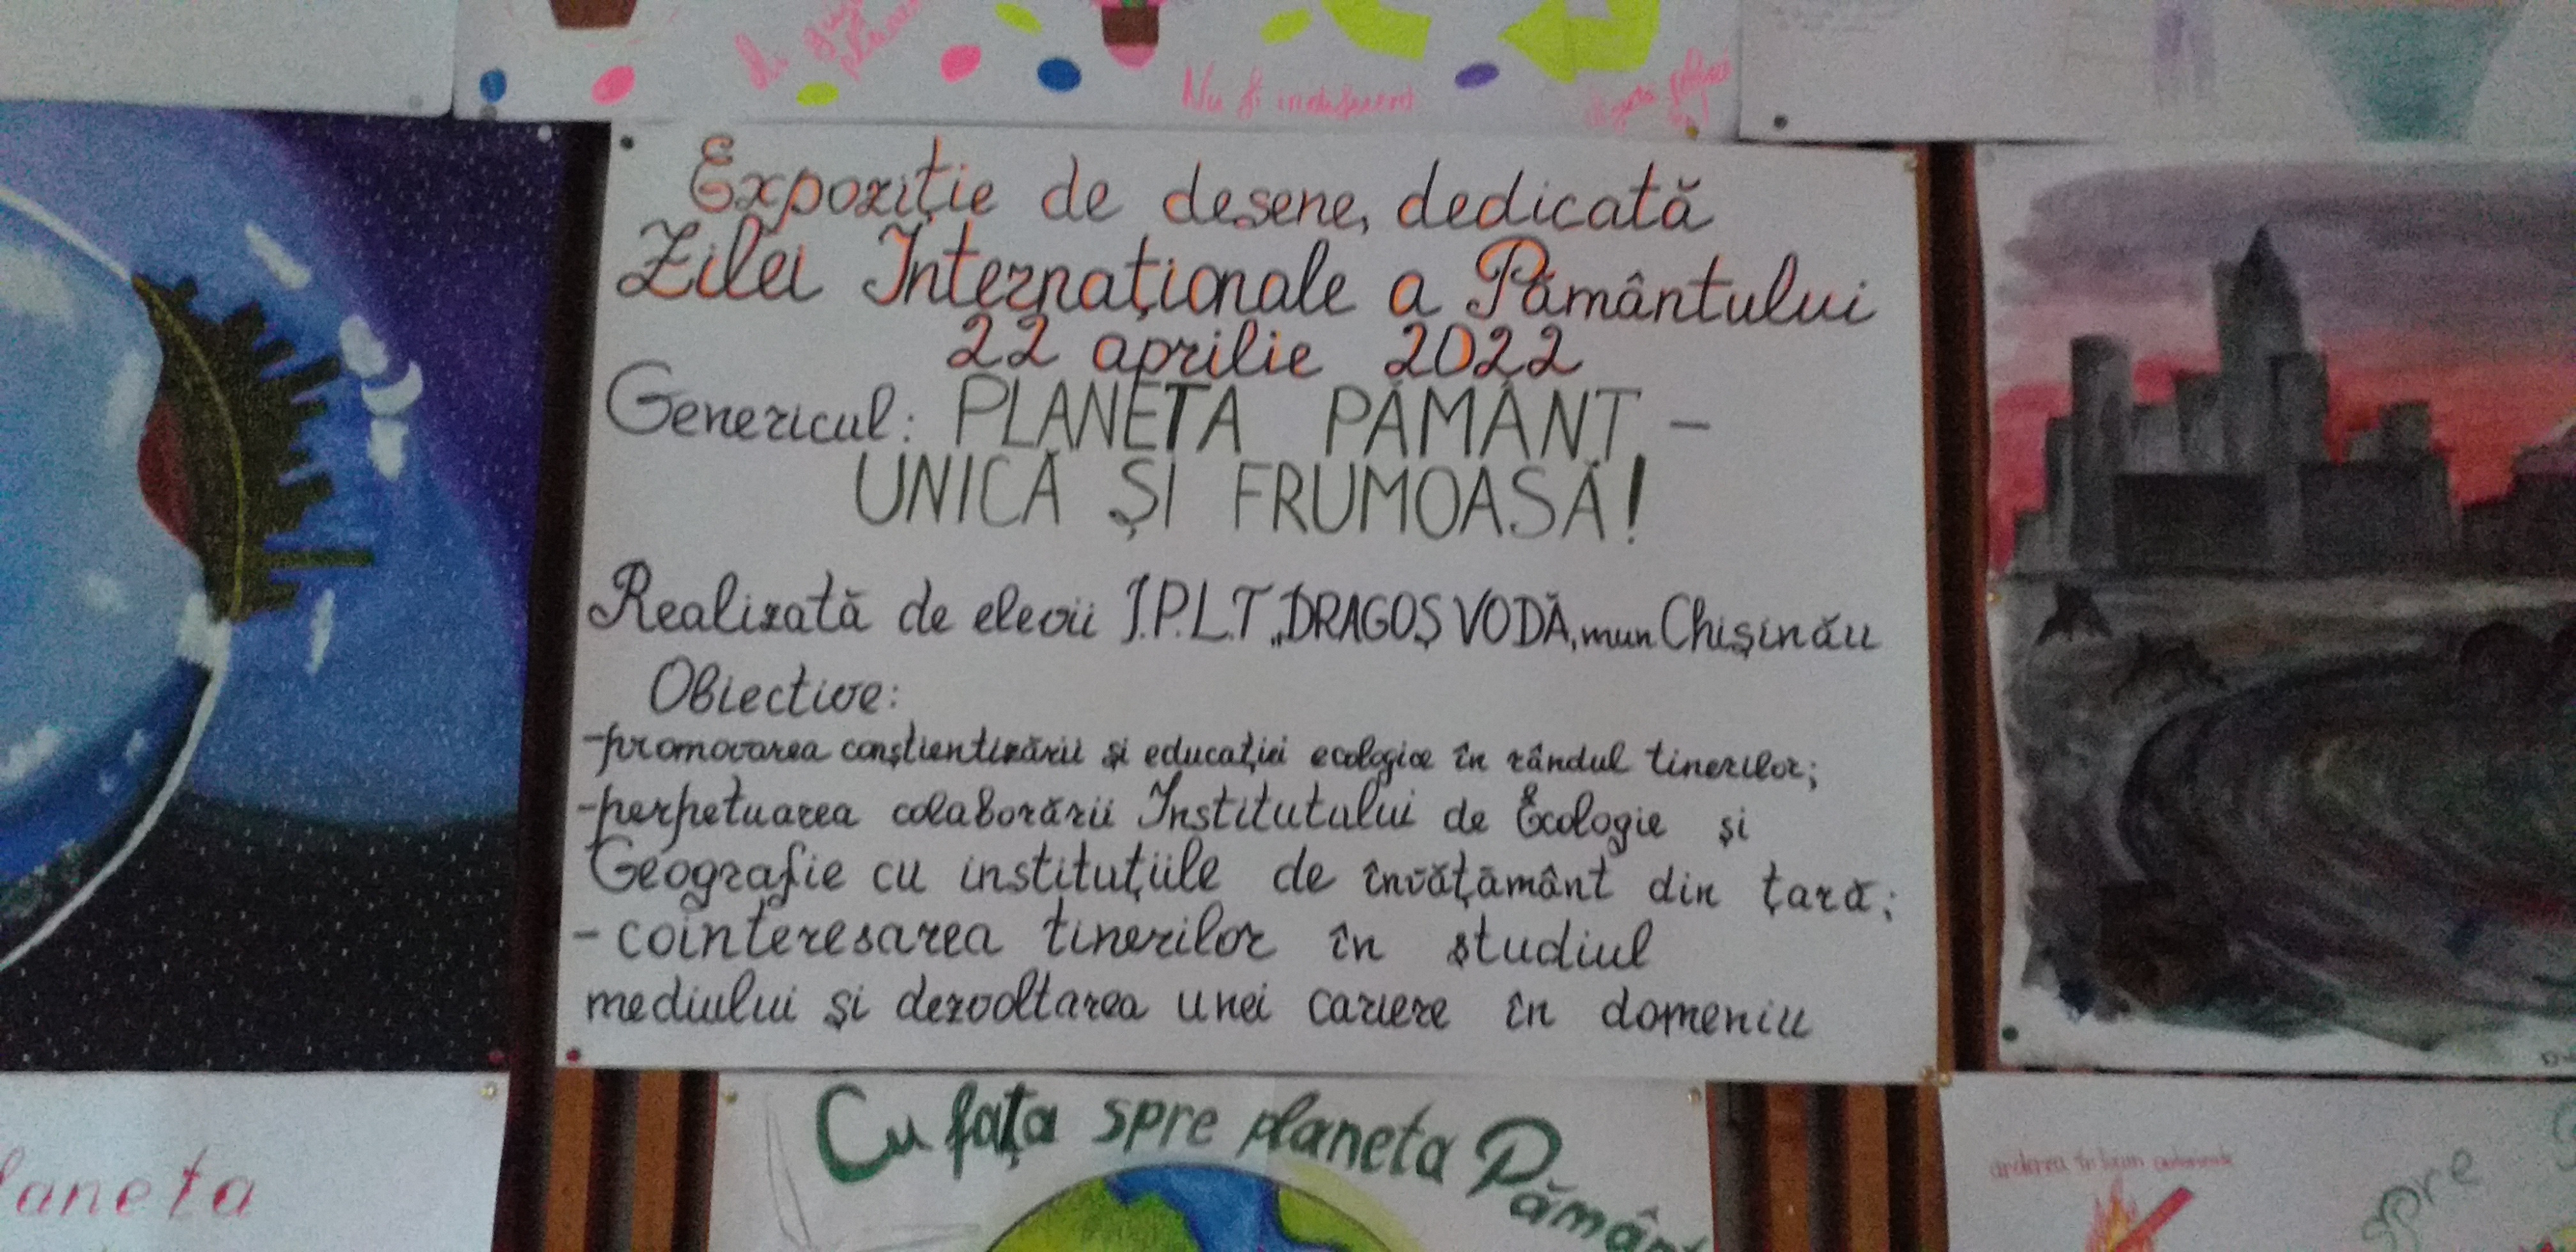 Nu fi indiferent
Expoziție de desene, dedicată
Zilei Internaționale a Pământului
22 aprilie 2022
Genericul: PLANETA PĂMÂNT –
UNICĂ ȘI FRUMOASĂ!
Realizată de elevii I.P.L.T „DRAGOȘ VODĂ, mun Chișinău
Obiective:
-promovarea conștientizării și educației ecologice în rândul tinerilor;
-perpetuarea colaborării Institutului de Ecologie și
Geografie cu instituțiile de învățământ din țară;
- cointeresarea tinerilor în studiul
mediului și dezvoltarea unei cariere în domeniu
Cu fața spre planeta Pământ
laneta
spre